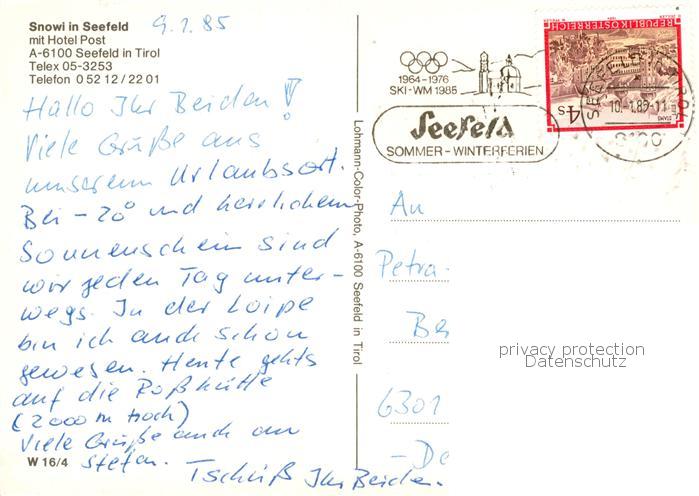 Snowi in Seefeld
mit Hotel Post
A-6100 Seefeld in Tirol
Telex 05-3253
Telefon 0 52 12 / 22 01
9.1.85
Hallo Ihr Beiden!
Viele Grüße aus
unserem Urlaubsort.
Bei -20° und herrlichem
Sonnenschein sind
wir jeden Tag unter-
wegs. In der Loipe
bin ich auch schon
gewesen. Heute gehts
auf die Roßhütte
(2000 m hoch)
Viele Grüße auch an
Stefan. Tschüß Ihr Beiden.
W 16/4
Lohmann-Color-Photo, A-6100 Seefeld in Tirol
1964-1976
SKI-WM 1985
Seefeld
SOMMER-WINTERFERIEN
REPUBLIK ÖSTERREICH
4 S
10.-1.85-11
6100
An
Petra
Be
6301
-De
privacy protection
Datenschutz